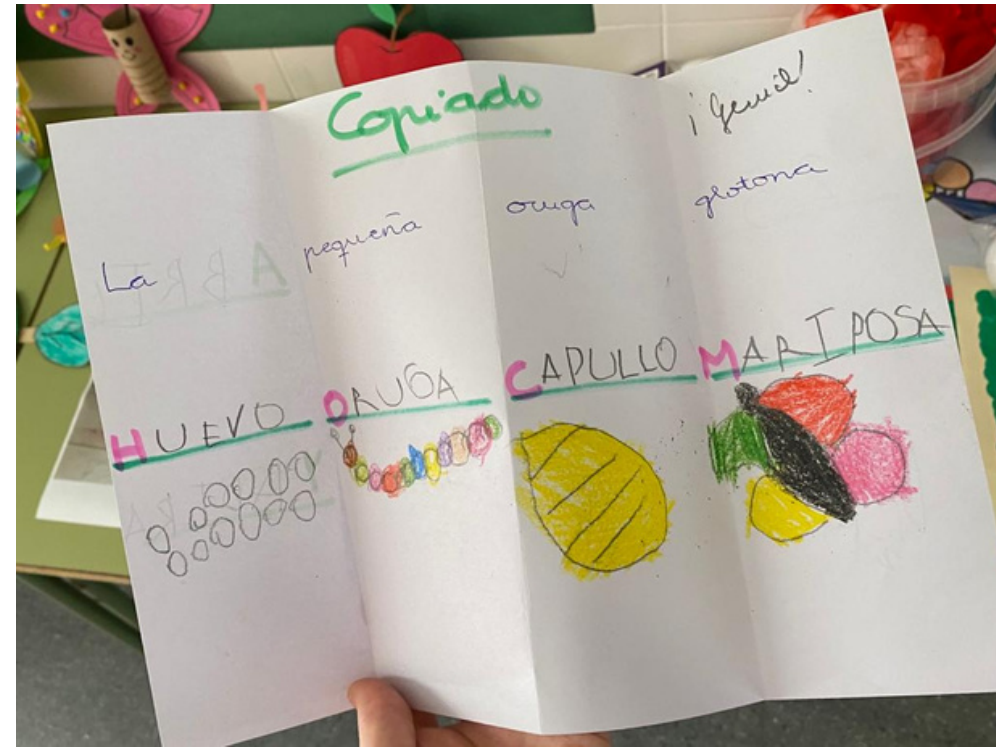 Copiado
¡Genial!
La pequeña oruga glotona
HUEVO ORUGA CAPULLO MARIPOSA